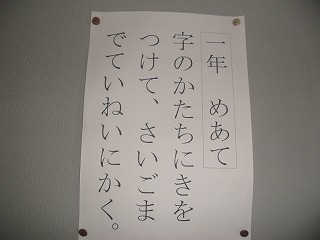 一年　めあて
字のかたちにきを
つけて、さいごま
でていねいにかく。